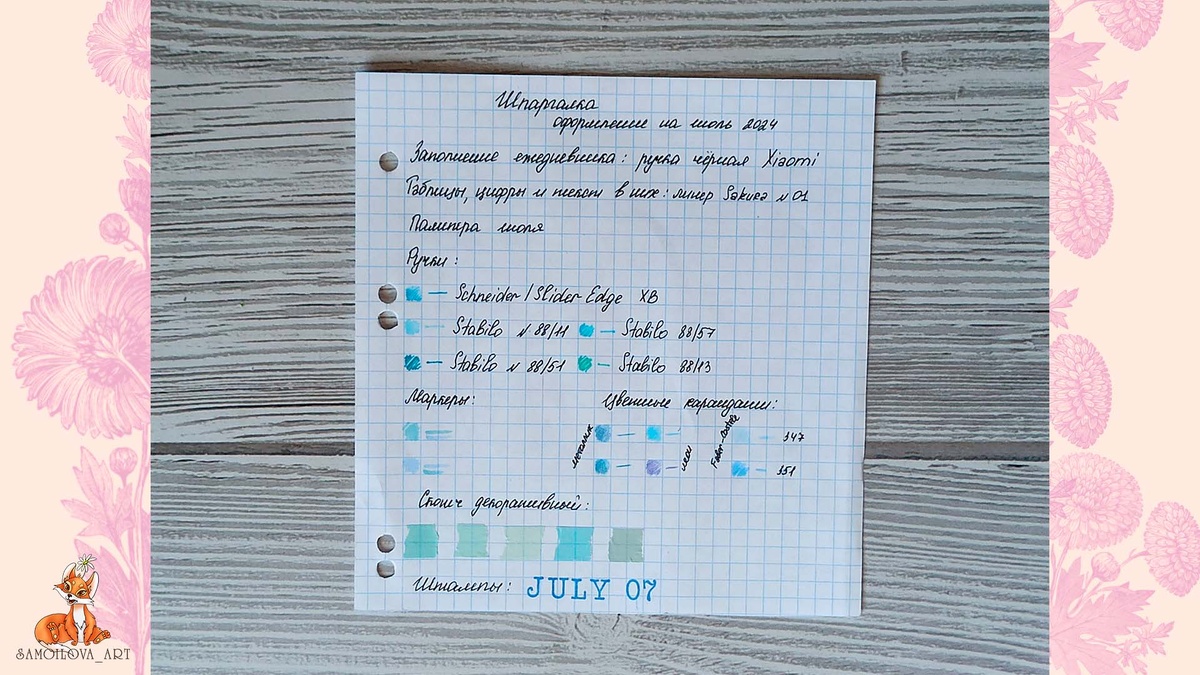 Шпаргалка
оформление на июль 2024
Заполнение ежедневника: ручка чёрная Xiaomi
Таблицы, цифры и текст в них: линер Sakura N 01
Палитра июля
Ручки:
Schneider / Slider Edge XB
Stabilo N 88/11 Stabilo 88/57
Stabilo N 88/51 Stabilo 88/13
Маркеры: Цветные карандаши:
металлик Faber-Castell 347
351
Скотч декоративный:
Штампы: JULY 07
SAMOILOVA_ART